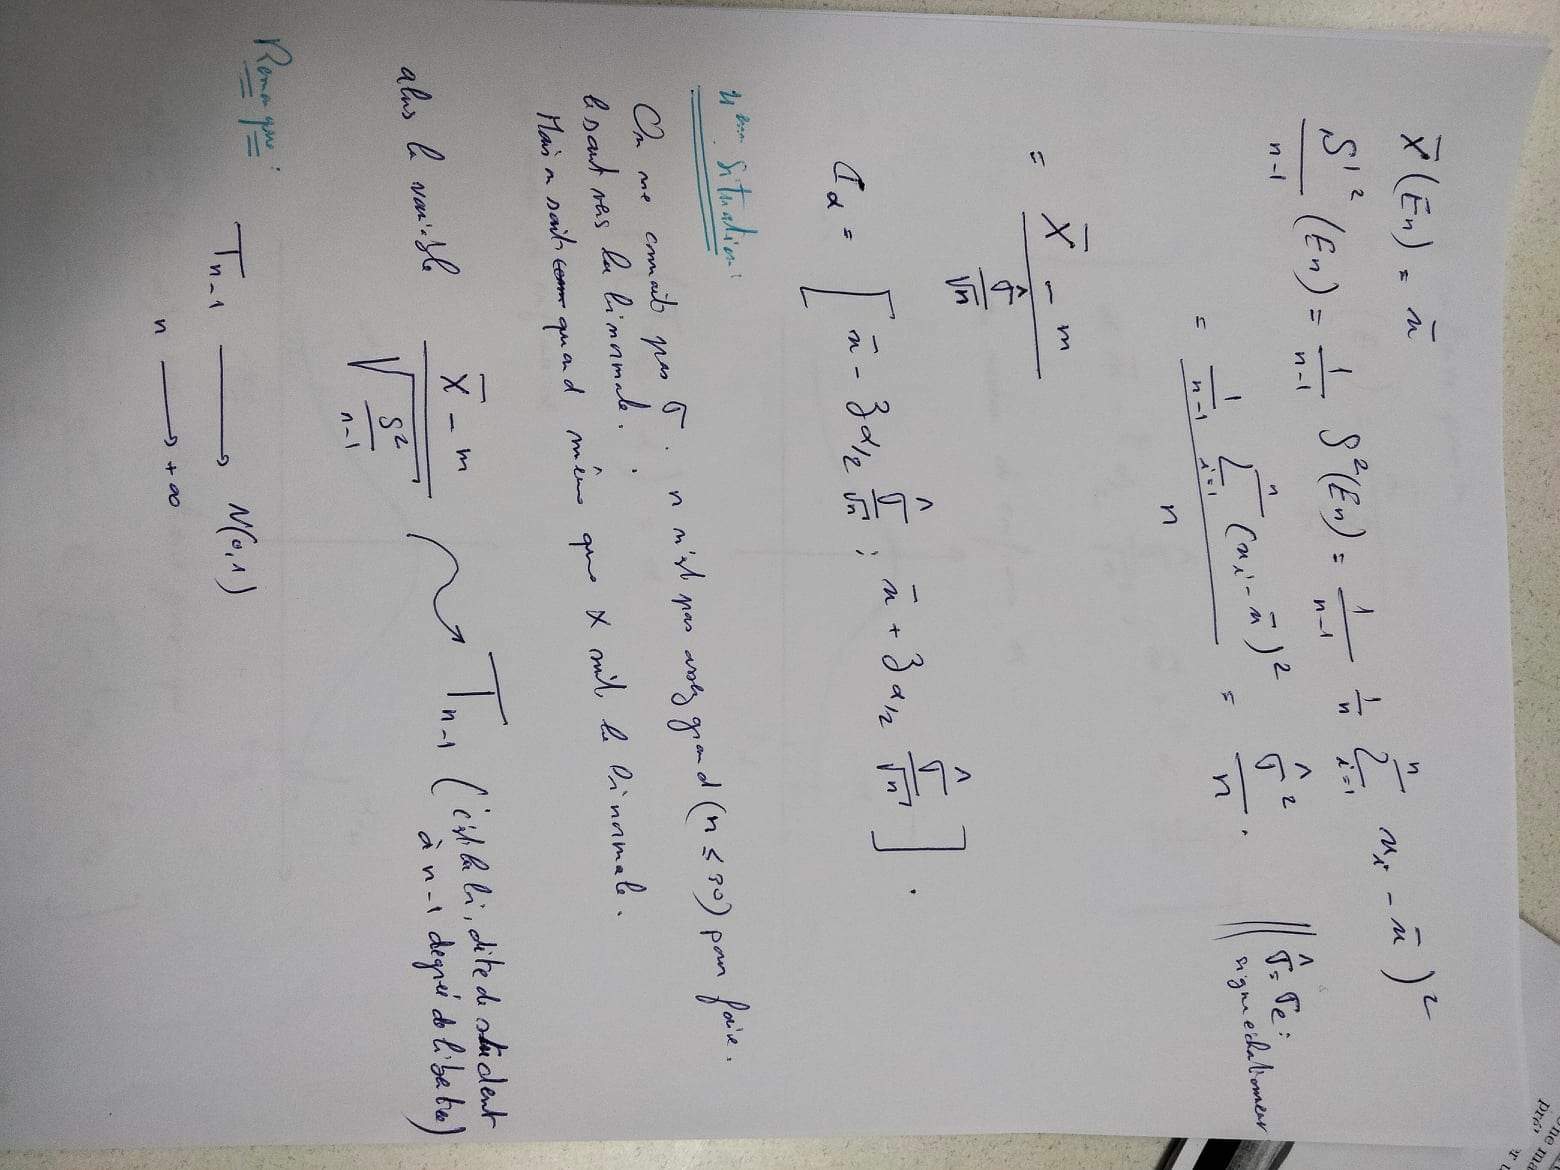 ne ma
X̄(En) = x̄
S'²/(n-1) (En) = 1/(n-1) S²(En) = 1/(n-1) 1/n Σ_{i=1}^{n} xi - x̄)²
= (1/(n-1) Σ_{i=1}^{n} (xi - x̄)²)/n = σ̂²/n .
σ̂ = σe :
sigma echationneur
= (X̄ - m)/(σ̂/√n)
Iα = [ x̄ - zα/2 σ̂/√n ; x̄ + zα/2 σ̂/√n ] .
4ème Situation :
On ne connaît pas σ . n n'est pas assez grand (n ≤ 30) pour faire.
le saut vers la loi normale.
Mais on sait quand même que X suit la loi normale.
alors la variable (X̄ - m)/√(S²/(n-1)) ⤳ T_{n-1} (c'est la loi, dite de student
à n-1 degrée de libertee)
Remarque :
T_{n-1} ⟶ N(0,1)
n ⟶ +∞